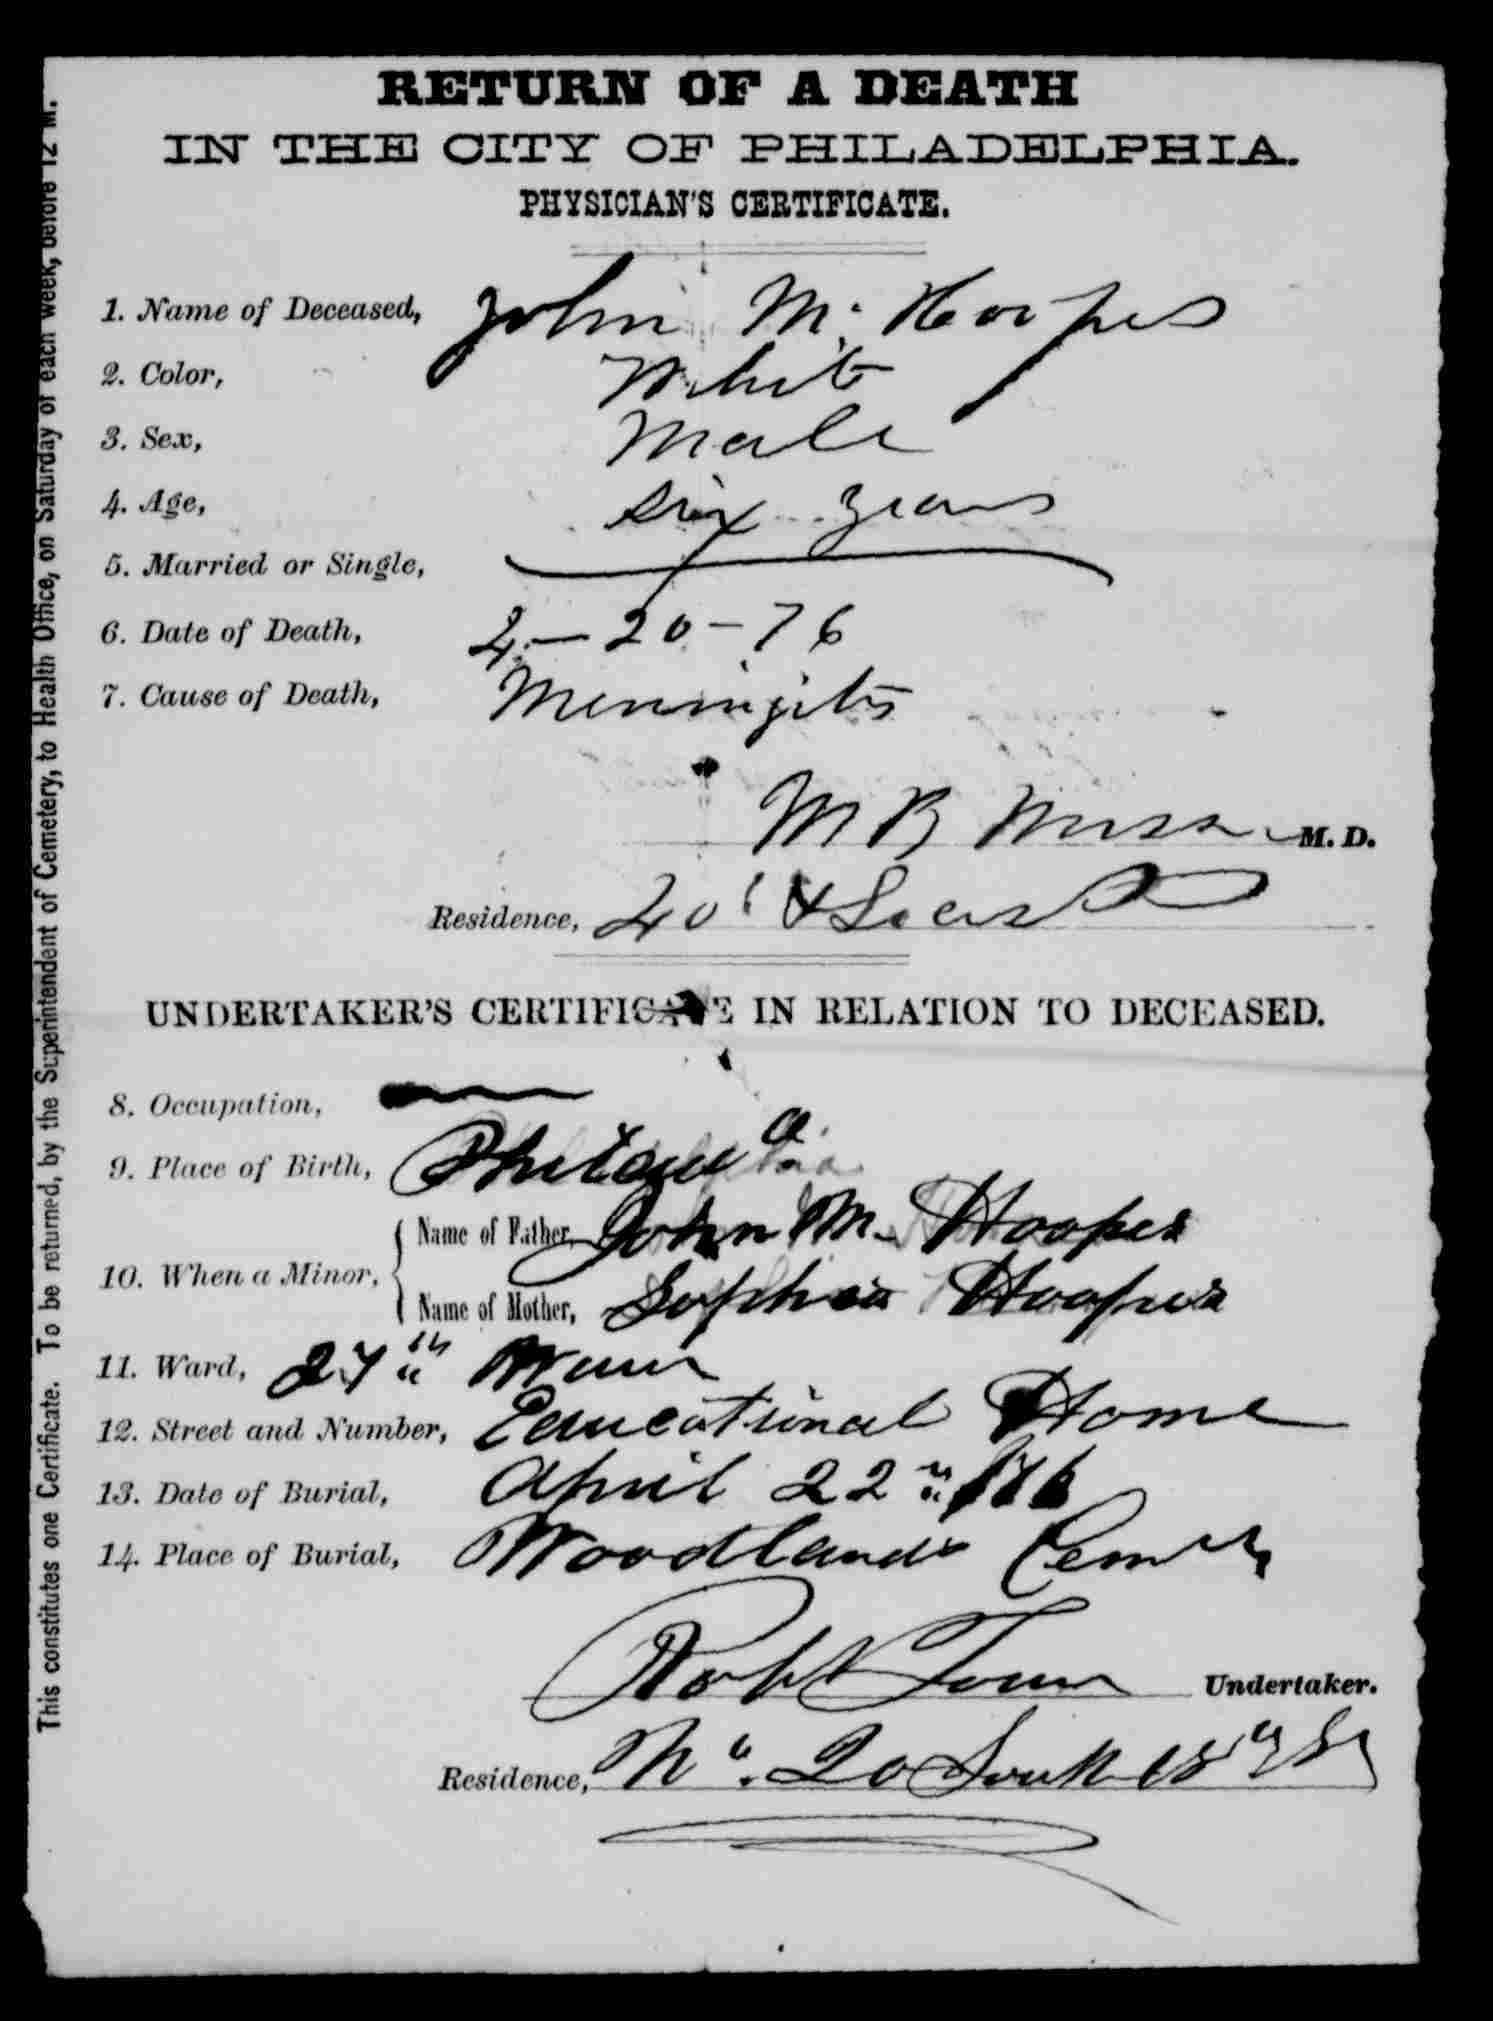 RETURN OF A DEATH
IN THE CITY OF PHILADELPHIA.
PHYSICIAN'S CERTIFICATE.
1. Name of Deceased, John M. Hoopes
2. Color, White
3. Sex, Male
4. Age, Six years
5. Married or Single,
6. Date of Death, 4-20-76
7. Cause of Death, Meningitis
M B M.D.
Residence, & Locust
UNDERTAKER'S CERTIFICATE IN RELATION TO DECEASED.
8. Occupation,
9. Place of Birth, Philada
10. When a Minor, Name of Father, John M. Hoopes
Name of Mother, Sophia Hoopes
11. Ward, 27th Ward
12. Street and Number, Educational Home
13. Date of Burial, April 22nd 1876
14. Place of Burial, Woodlands Cemty
Robt Undertaker.
Residence, No. 20 South St
This constitutes one Certificate. To be returned, by the Superintendent of Cemetery, to Health Office, on Saturday of each week, before 12 M.